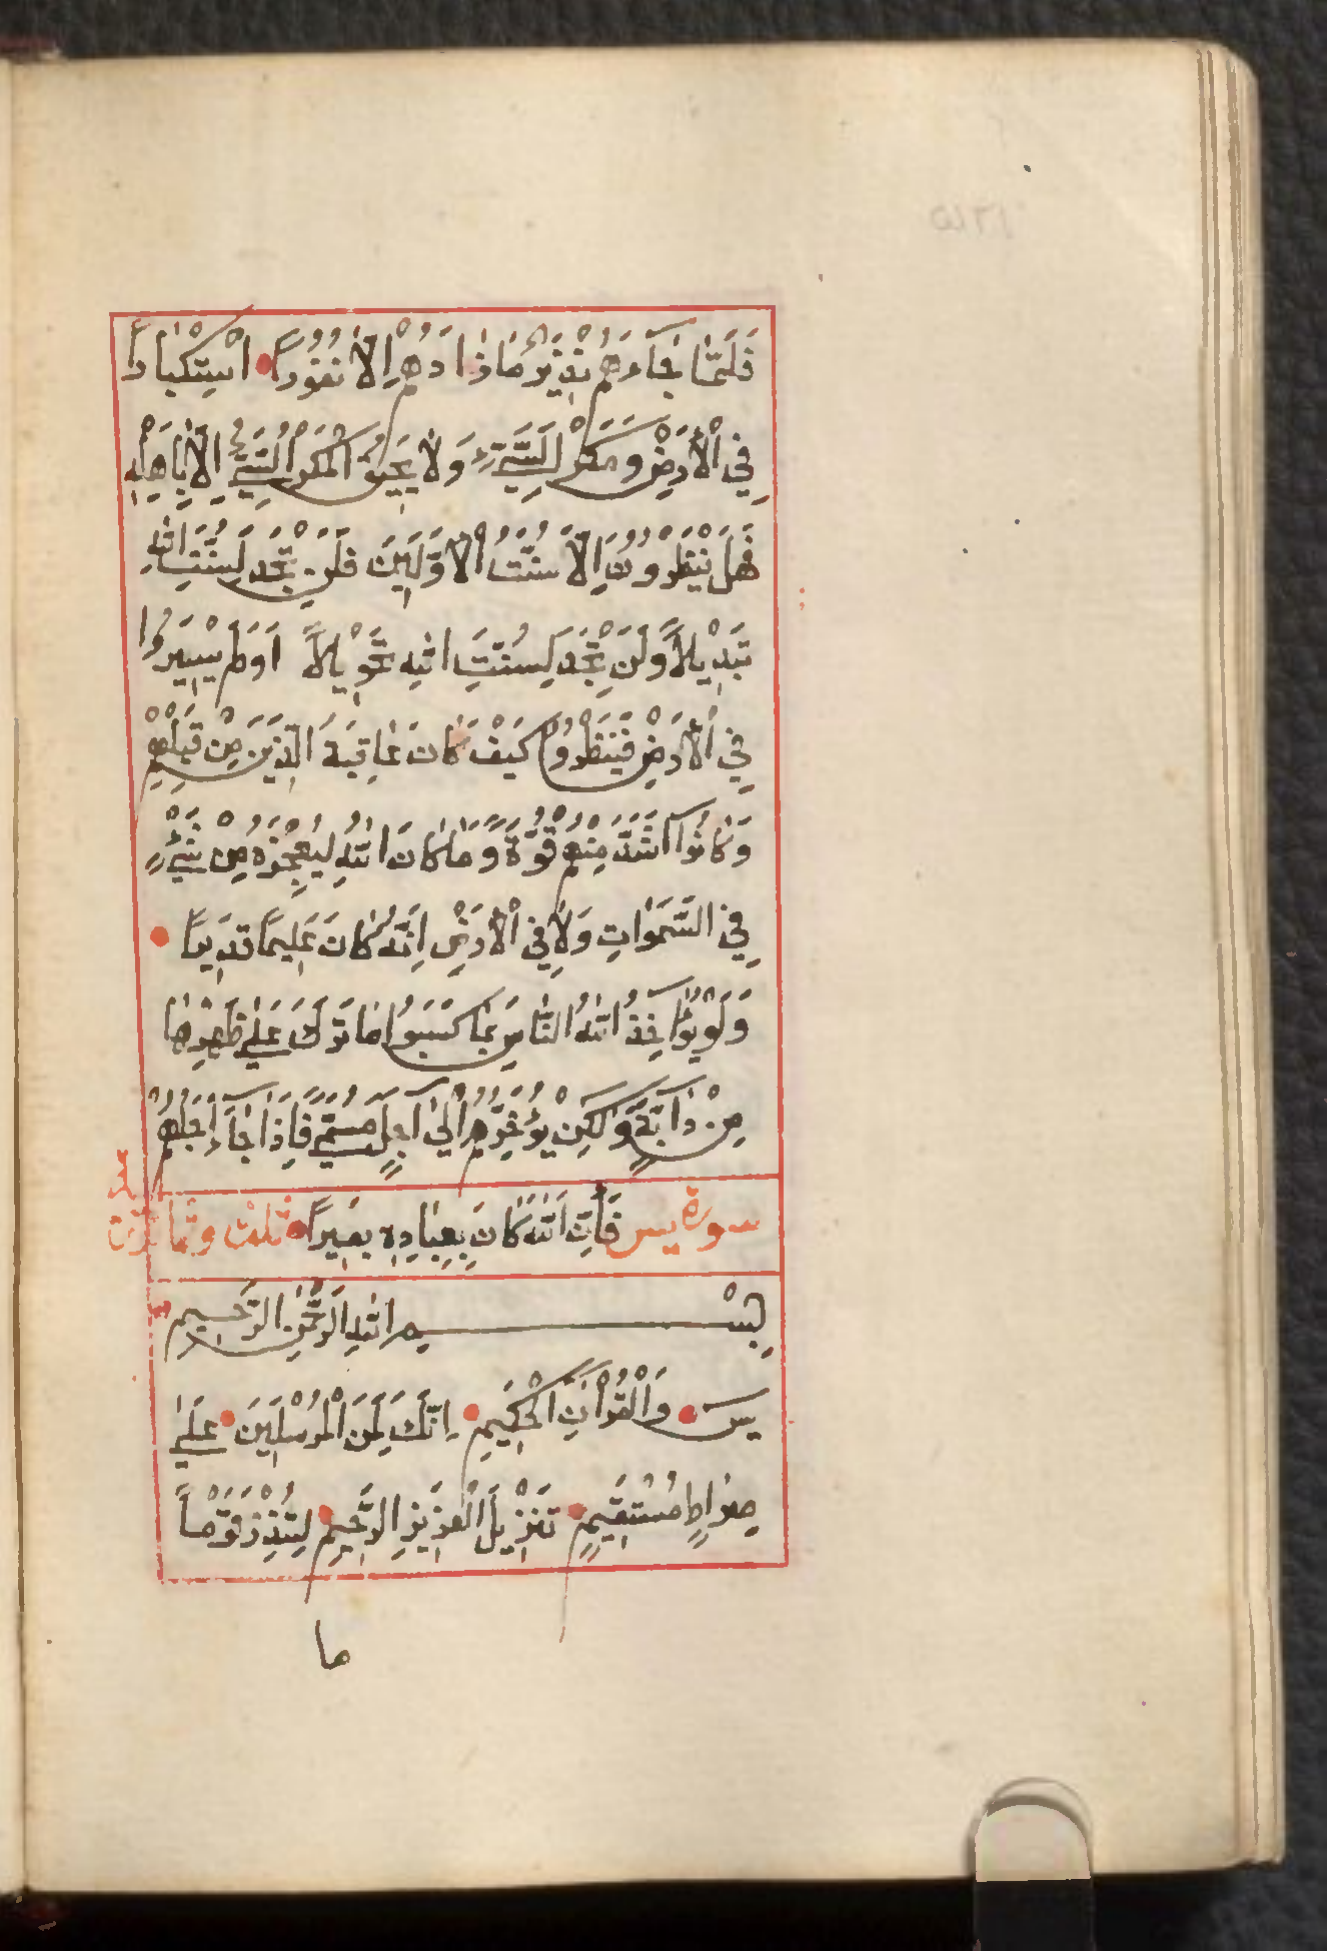 فَلَمَّا جَآءَهُمْ نَذِيرٌ مَا زَادَهُمْ اِلَّا نُفُورًا اسْتِكْبَارًا
فِي الْاَرْضِ وَمَكْرَ السَّيِّئِ وَلَا يَحِيقُ الْمَكْرُ السَّيِّئُ اِلَّا بِاَهْلِهِ
فَهَلْ يَنْظُرُونَ اِلَّا سُنَّتَ الْاَوَّلِينَ فَلَنْ تَجِدَ لِسُنَّتِ اللّٰهِ
تَبْدِيلًا وَلَنْ تَجِدَ لِسُنَّتِ اللّٰهِ تَحْوِيلًا اَوَلَمْ يَسِيرُوا
فِي الْاَرْضِ فَيَنْظُرُوا كَيْفَ كَانَ عَاقِبَةُ الَّذِينَ مِنْ قَبْلِهِمْ
وَكَانُوآ اَشَدَّ مِنْهُمْ قُوَّةً وَمَا كَانَ اللّٰهُ لِيُعْجِزَهُ مِنْ شَيْءٍ
فِي السَّمٰوَاتِ وَلَا فِي الْاَرْضِ اِنَّهُ كَانَ عَلِيمًا قَدِيرًا
وَلَوْ يُؤَاخِذُ اللّٰهُ النَّاسَ بِمَا كَسَبُوا مَا تَرَكَ عَلٰى ظَهْرِهَا
مِنْ دَآبَّةٍ وَلٰكِنْ يُؤَخِّرُهُمْ اِلٰٓى اَجَلٍ مُسَمًّى فَاِذَا جَآءَ اَجَلُهُمْ
سورة يس فَاِنَّ اللّٰهَ كَانَ بِعِبَادِهِ بَصِيرًا ثلث وثمانون
بِسْمِ اللّٰهِ الرَّحْمٰنِ الرَّحِيمِ
يسٓ وَالْقُرْاٰنِ الْحَكِيمِ اِنَّكَ لَمِنَ الْمُرْسَلِينَ عَلٰى
صِرَاطٍ مُسْتَقِيمٍ تَنْزِيلَ الْعَزِيزِ الرَّحِيمِ لِتُنْذِرَ قَوْمًا
ما